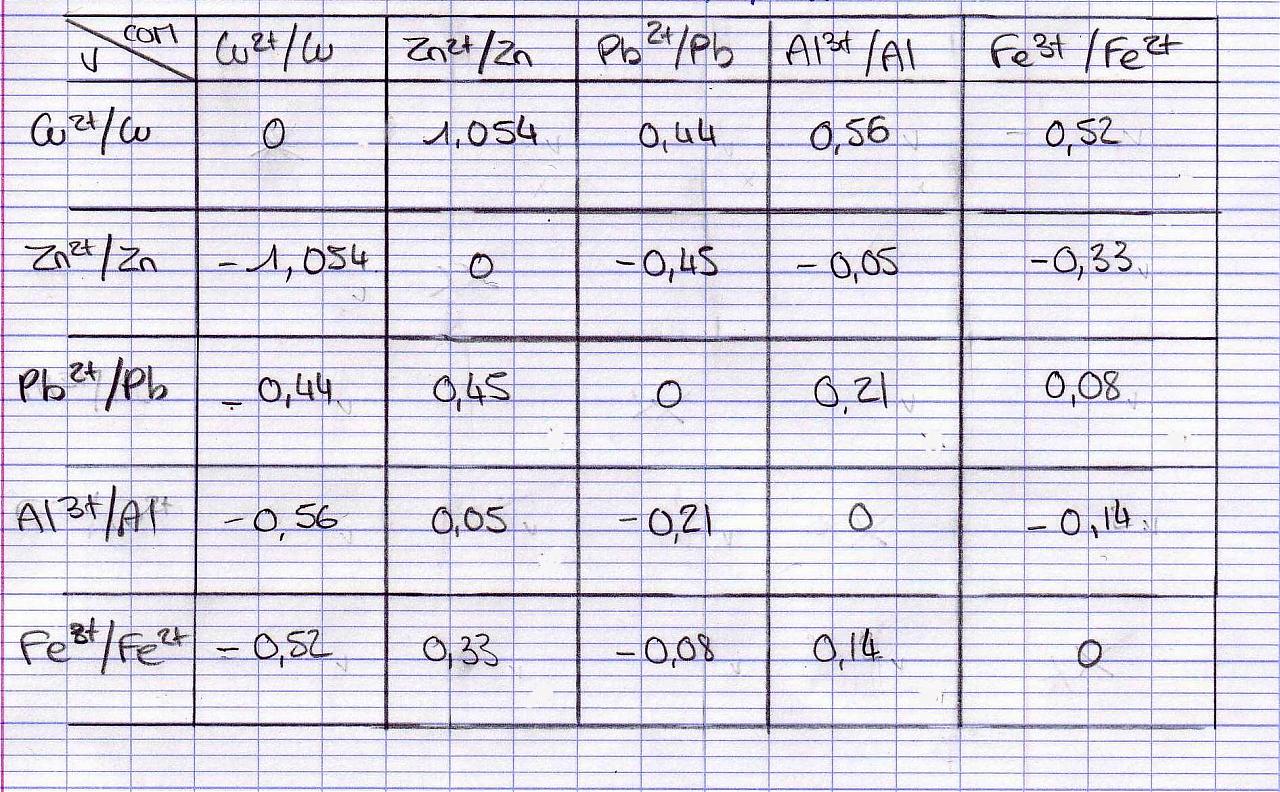 COM
V Cu²⁺/Cu Zn²⁺/Zn Pb²⁺/Pb Al³⁺/Al Fe³⁺/Fe²⁺
Cu²⁺/Cu 0 1,054 0,44 0,56 0,52
Zn²⁺/Zn -1,054 0 -0,45 -0,05 -0,33
Pb²⁺/Pb -0,44 0,45 0 0,21 0,08
Al³⁺/Al -0,56 0,05 -0,21 0 -0,14
Fe³⁺/Fe²⁺ -0,52 0,33 -0,08 0,14 0